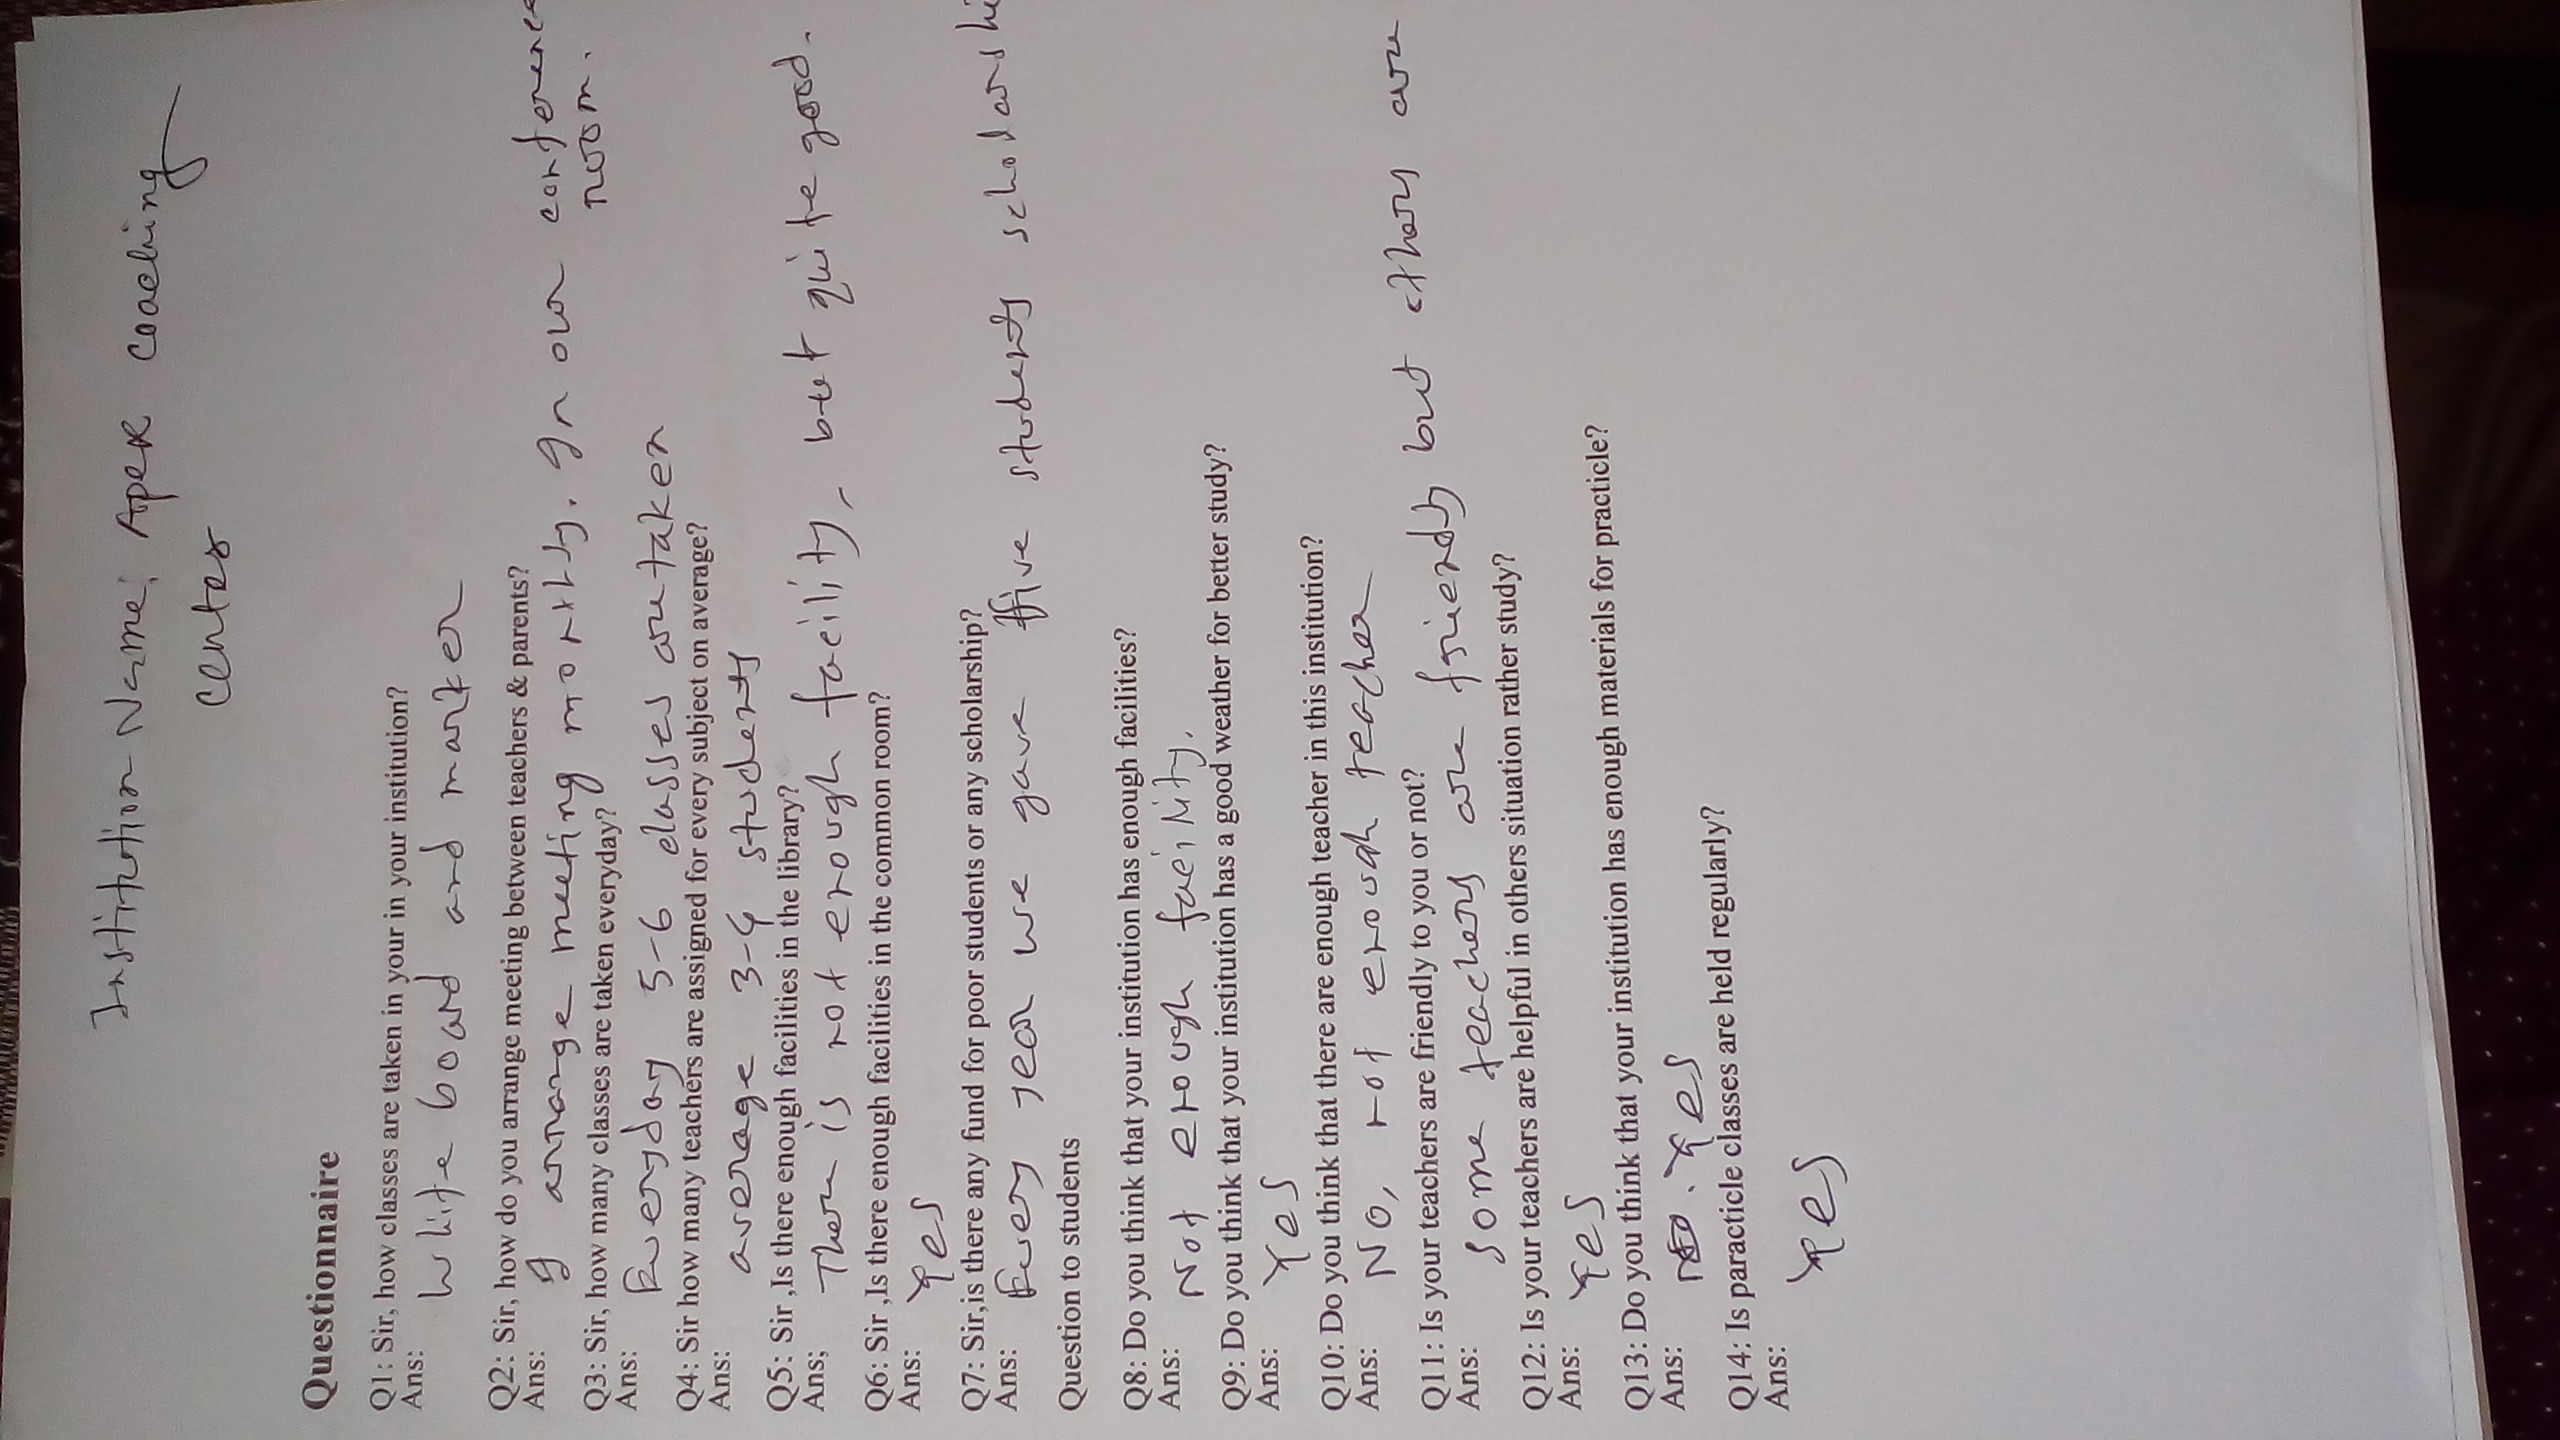 Institution Name: Apex coaching
center
Questionnaire
Q1: Sir, how classes are taken in your in your institution?
Ans: White board and marker
Q2: Sir, how do you arrange meeting between teachers & parents?
Ans: I arrange meeting monthly. In our conference
room.
Q3: Sir, how many classes are taken everyday?
Ans: Everyday 5-6 classes are taken
Q4: Sir how many teachers are assigned for every subject on average?
Ans: average 3-4 students
Q5: Sir ,Is there enough facilities in the library?
Ans; There is not enough facility, but quite good.
Q6: Sir ,Is there enough facilities in the common room?
Ans: Yes
Q7: Sir,is there any fund for poor students or any scholarship?
Ans: Every year we gave five students scholarshi
Question to students
Q8: Do you think that your institution has enough facilities?
Ans: Not enough facility.
Q9: Do you think that your institution has a good weather for better study?
Ans: Yes
Q10: Do you think that there are enough teacher in this institution?
Ans: No, not enough teacher
Q11: Is your teachers are friendly to you or not?
Ans: Some teachers are friendly but others are
Q12: Is your teachers are helpful in others situation rather study?
Ans: Yes
Q13: Do you think that your institution has enough materials for practicle?
Ans: Yes
Q14: Is paracticle classes are held regularly?
Ans: Yes